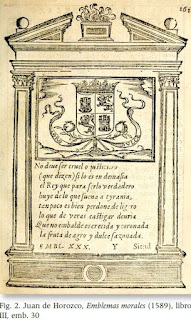 161
No deve ser cruel o justiciero
(que dezen) si lo es en demasia
el Rey que para serlo verdadero
huye de lo que suena a tyrania,
tampoco es bien perdone de ligero
lo que de veras castigar devria
Que no embalde es cocida y coronada
la fruta de agro y dulce sazonada.
EMBL. XXX. Y
Fig. 2. Juan de Horozco, Emblemas morales (1589), libro
III, emb. 30